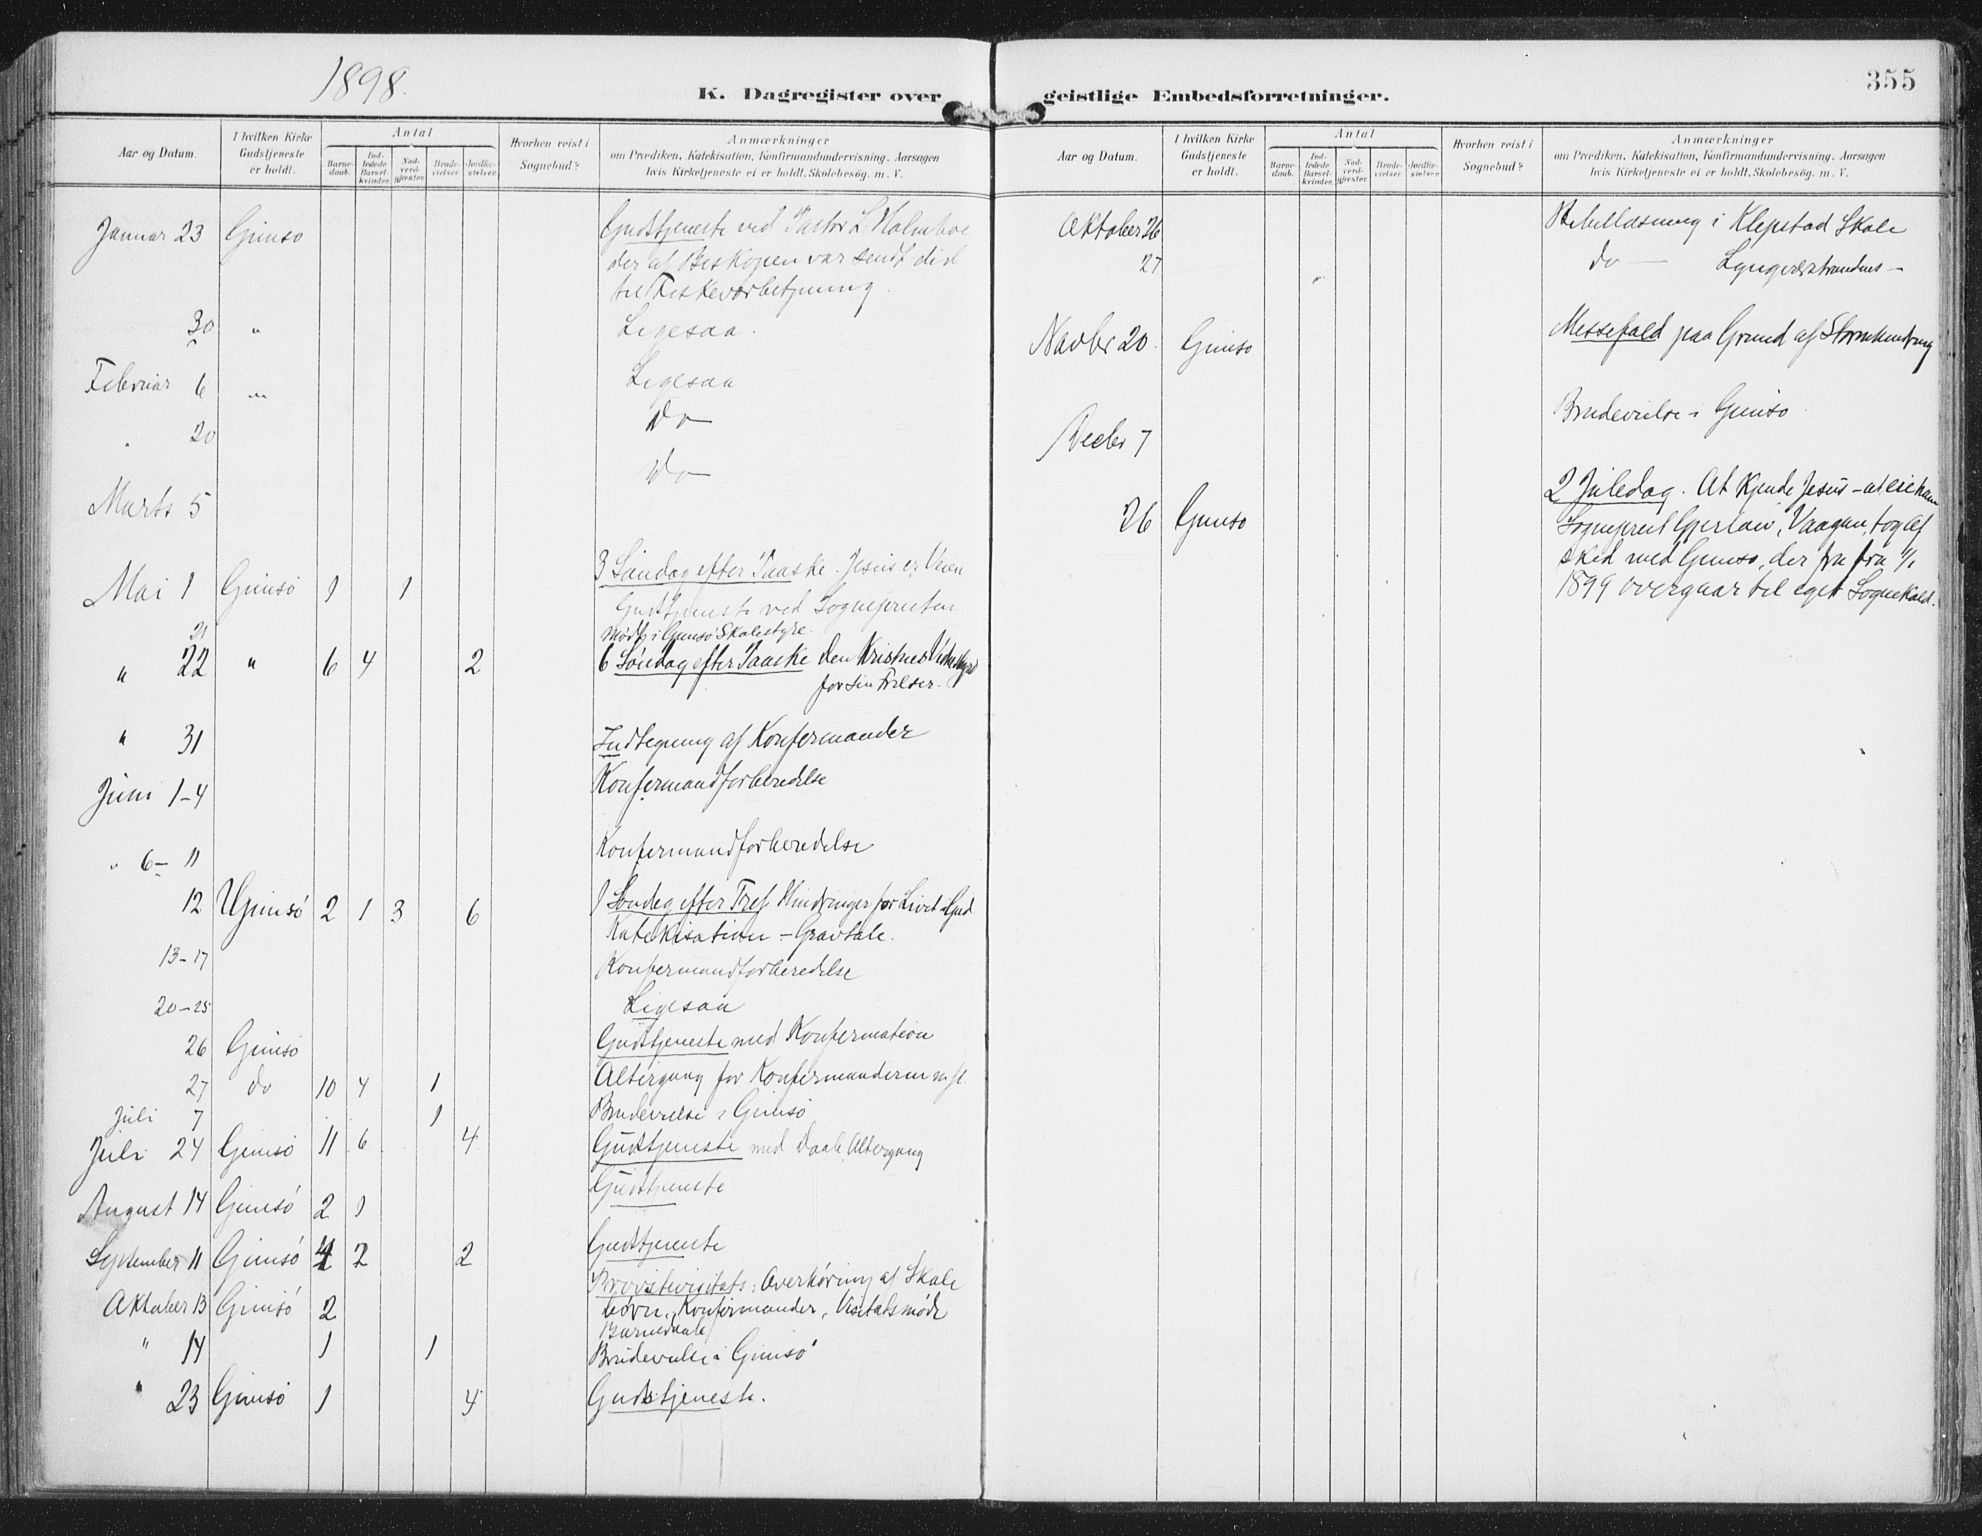 1898.
K. Dagregister over
Aar og Datum.
I hvilken Kirke Gudstjeneste er holdt.
Antal
Barne-daab.
Ind-ledede Barsel-kvinder.
Nad-verd-gjester.
Brude-vielser.
Jordfæ-stelser.
Hvorhen reist i Sognebud?
Anmærkninger
om Prædiken, Katekisation, Konfirmandundervisning, Aarsagen
hvis Kirketjeneste ei er holdt, Skolebesøg, m. V.
Januar 23 Gimsø Gudstjeneste ved Pastor L. Holmboe
der af Biskopen var sendt did
til Fiskeværbetjening.
30 " Ligesaa.
Februar 6 " Ligesaa
" 20 Do
Marts 5 Do
Mai 1 Gimsø 1 1 3 Søndag efter Paaske. Jesus er Veien
Gudstjeneste ved Sognepresten
21 Møde i Gimsø Skolestyre.
" 22 " 6 4 2 6 Søndag efter Paaske den Kristnes Vidnesbyrd
for sin Frelser.
" 31 Indtegning af Konfirmander
Juni 1-4 Konfirmandforberedelse
" 6-11 Konfirmandforberedelse
12 Gimsø 2 1 3 6 1 Søndag efter Tref. Hindringer for Livet i Gud
Katekisation - Gravtale.
13-17 Konfirmandforberedelse
20-25 Ligesaa
26 Gimsø Gudstjeneste med Konfirmation
27 do 10 4 1 Altergang for Konfirmanderne m. fl.
Juli 7 1 Brudevielse i Gimsø
Juli 24 Gimsø 11 6 4 Gudstjeneste med Daab, Altergang
August 14 Gimsø 2 1 Gudstjeneste
September 11 Gimsø 4 2 2 Gudstjeneste
Oktober 13 Gimsø 2 Provstevisitats: Overhøring af Skole
børn, Konfirmander, Visitatsmøde
Barnedaab
" 14 1 1 Brudevielse i Gimsø
" 23 Gimsø 1 4 Gudstjeneste.
geistlige Embedsforretninger.
355
Aar og Datum.
I hvilken Kirke Gudstjeneste er holdt.
Antal
Barne-daab.
Ind-ledede Barsel-kvinder.
Nad-verd-gjester.
Brude-vielser.
Jordfæ-stelser.
Hvorhen reist i Sognebud?
Anmærkninger
om Prædiken, Katekisation, Konfirmandundervisning, Aarsagen
hvis Kirketjeneste ei er holdt, Skolebesøg, m. V.
Oktober 26 Bibellæsning i Klepstad Skole
27 do — Lyngværstrandens —
Novbr 20. Gimsø Messefald paa Grund af Stormhindring
Decbr 7 Brudevielse i Gimsø
26 Gimsø 2 Juledag. At kjende Jesus - at eie ham
Sogneprest Gjerløw, Vaagan, tog af
sked med Gimsø, der fra 1/1
1899 overgaar til eget Sognekald.